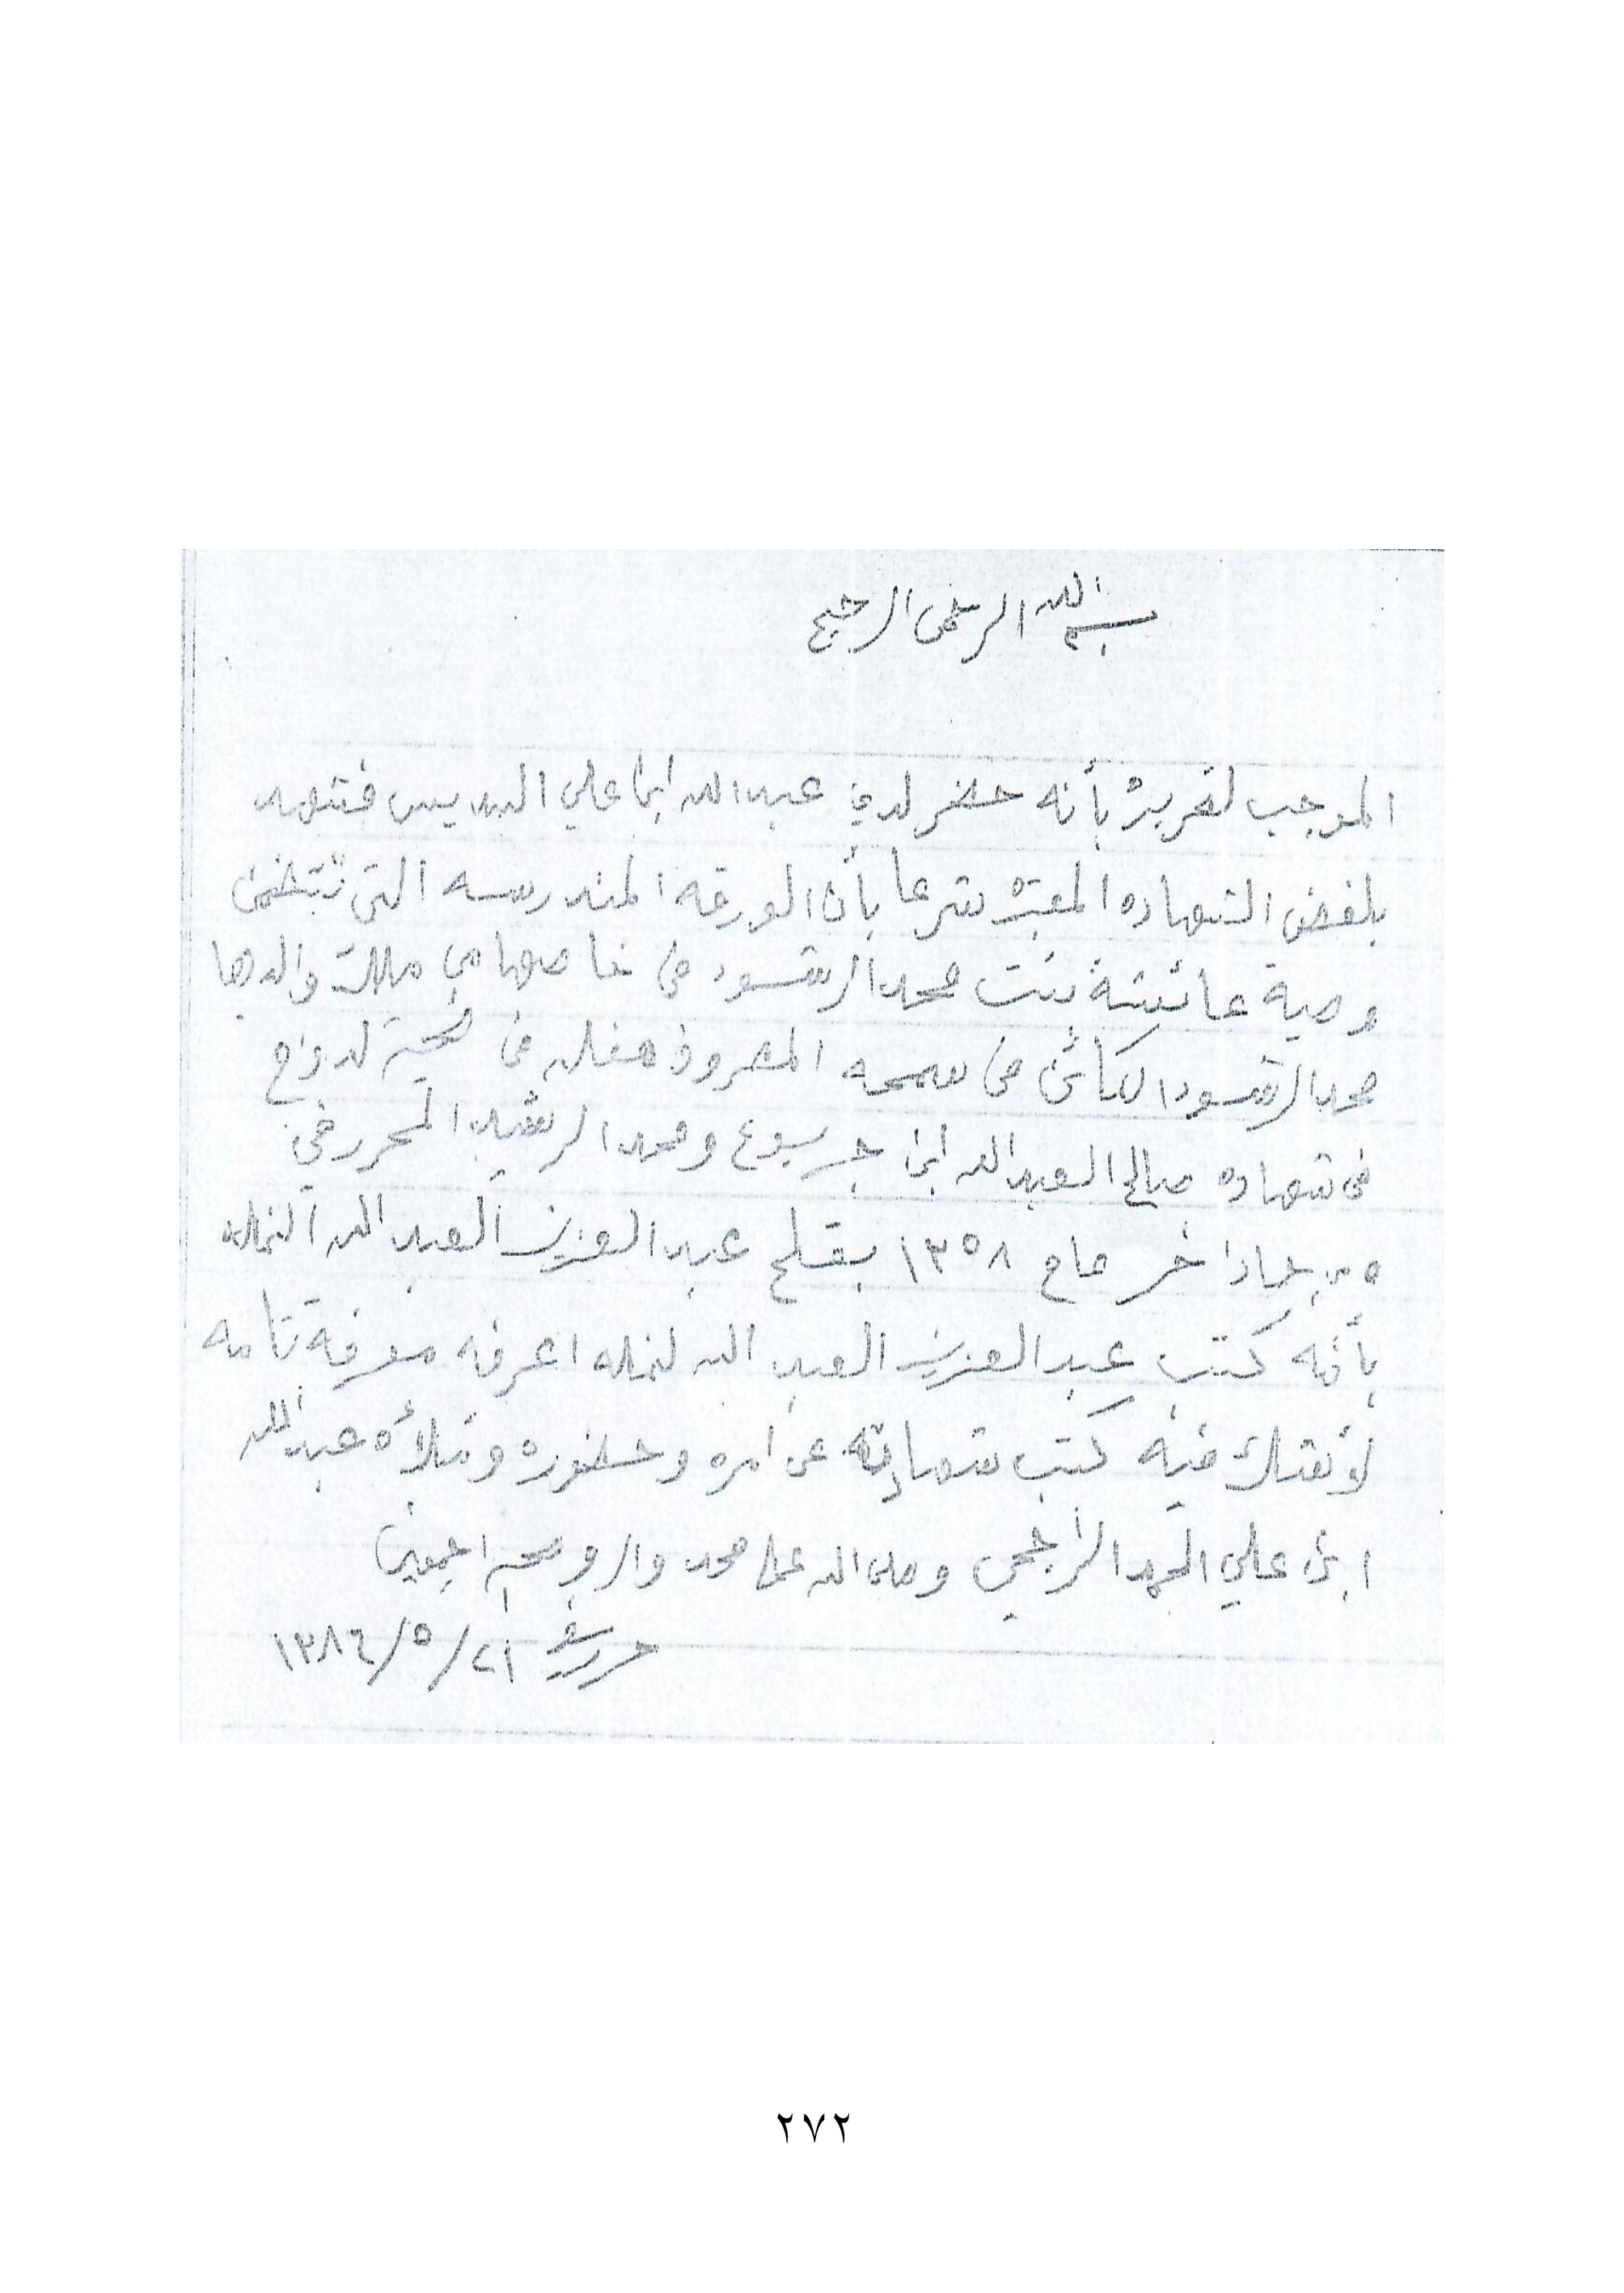 بسم الله الرحمن الرحيم
الموجب لتحريره بأنه حضر لدي عبدالله ابن علي السديس فشهد
بلفض الشهاده المعتبره شرعا بأن الورقه المندرسه التي تتضمن
وصية عائشة بنت محمد الرشود في خاصها من ملك والدها
محمد الرشود الكائن في سمحه المعروف هناك في لدواج
في شهاده صالح العبدالله ابن جربوع ومحمد الرشيد المحرر في
٢٥ جماد اخر عام ١٣٥٨ بقلم عبدالعزيز العبدالله النمله
بأنه كتب عبدالعزيز العبدالله لنمله اعرفه معرفة تامه
لأشك فيه كتب شهادته عن امره وحضوره وتلأه عبدالله
ابن علي المحمد الراجحي وصلى الله على محمد واله وصحبه اجمعين
حرر في ٢١/٥/١٣٨٦
٢٧٢